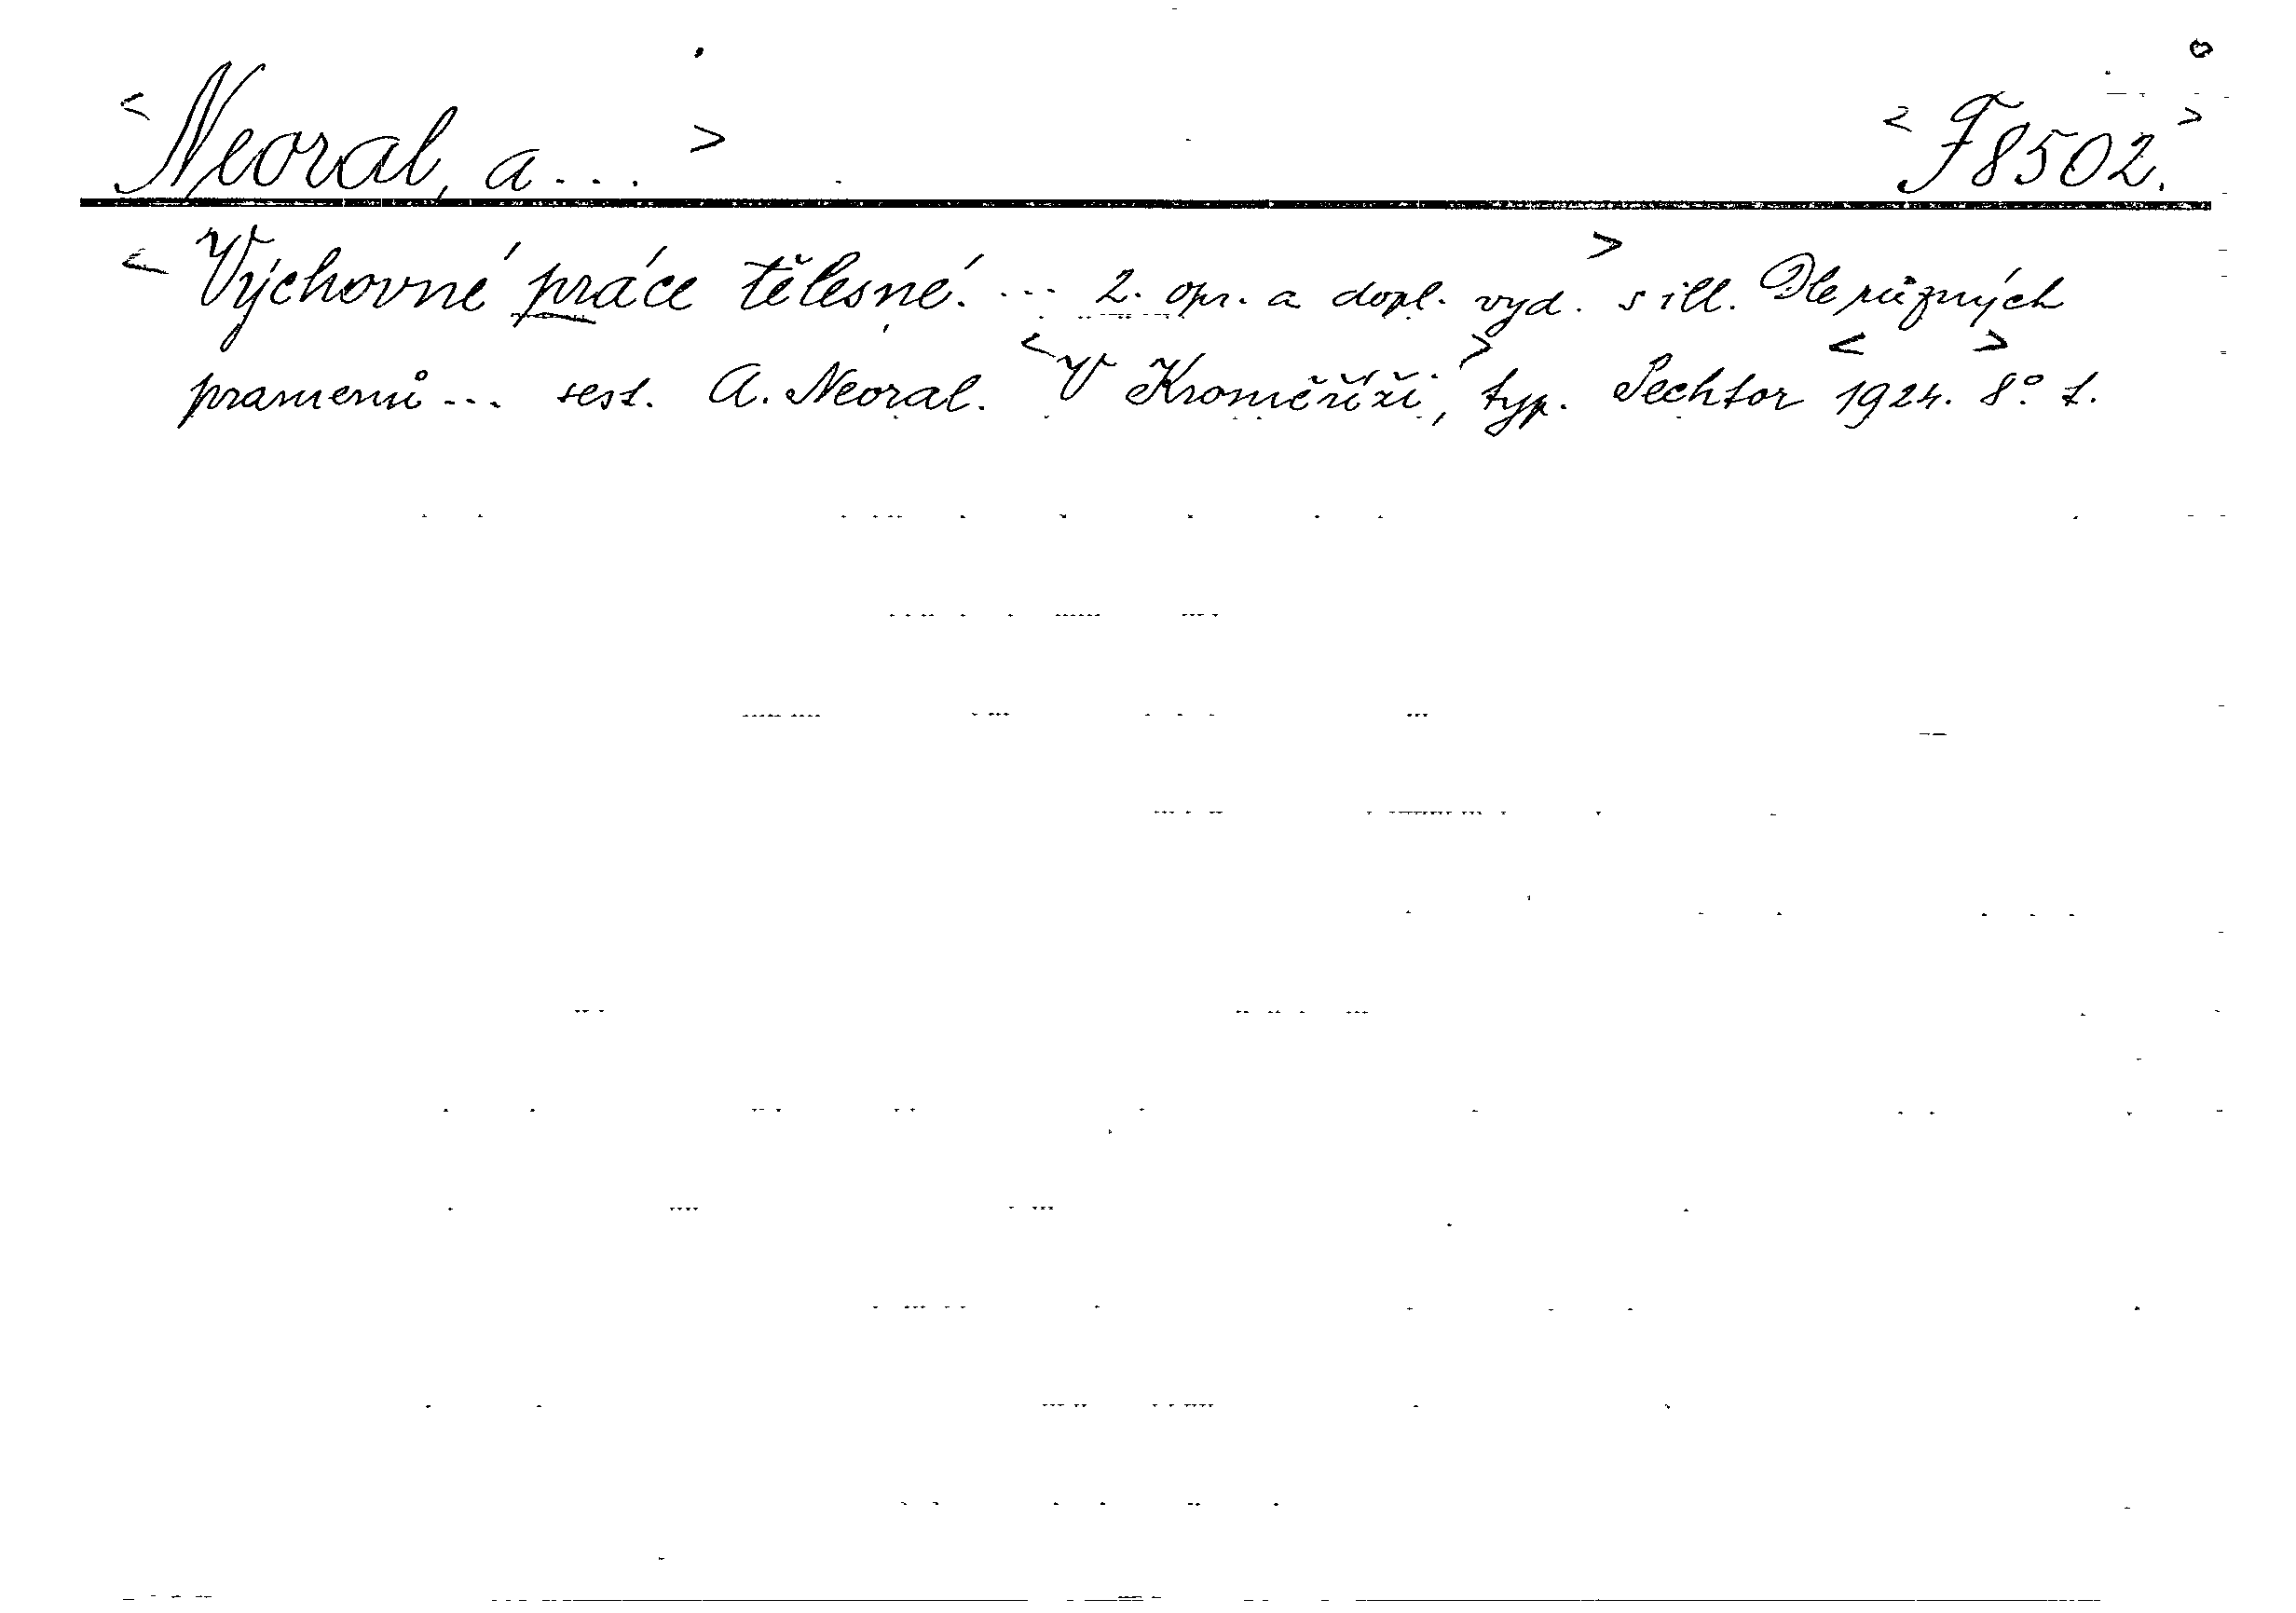 <Neoral, A...> <F 8502.>
<Výchovné práce tělesné. ... 2. opr. a dopl. vyd.> s ill. Dle různých
pramenů ... sest. A. Neoral. <V Kroměříži,> typ. Sechtor <1924.> 8° 1.